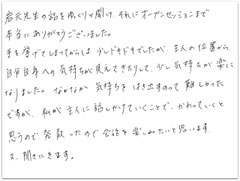 岩沢先生の話をゆっくり聞け、それにオープンセッションまで
本当にありがとうございました。
手を挙げてしまってからは、少しドキドキでしたが、主人の位置から
自分自身への気持ちが見えてきたりして、少し気持ちが楽に
なりました。なかなか気持ちをはき出すのって難しかった
ですが、私が主人に話しかけていくことで、かわっていくと
思うので発散したので会話を楽しみたいと思います。
又、聞きにきます。